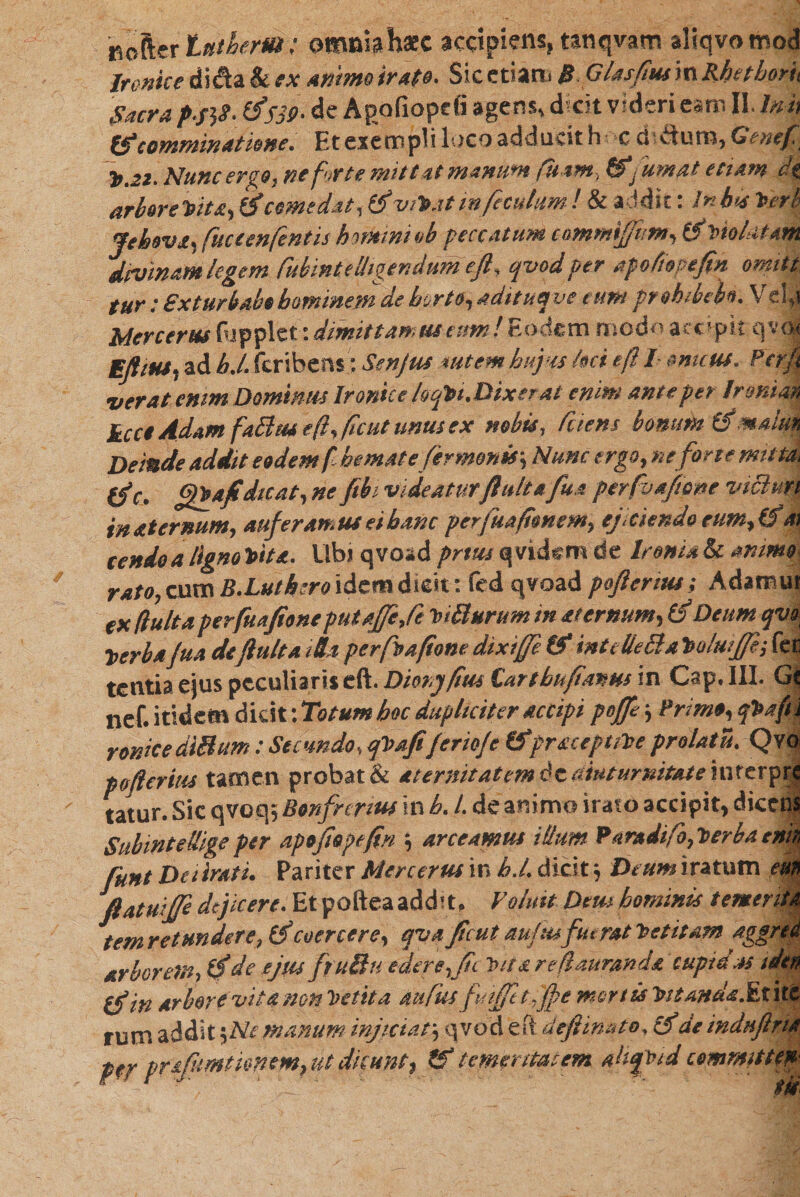 noſter Lutherus: omnia hæc accipiens, tanqvam aliqvo mod
Ironice dicta & ex animo irato. Sic etiam B. Glasſius in Rhethori
Sacra p.538. & 539. de Apoſiopeſi agens, dicit videri eam II. Ini
& comminatione. Et exempli loco adducit hoc dictum, Geneſ.
v.22. Nunc ergo, ne forte mittat manum ſuam, & ſumat etiam de
arbore vitæ, & comedat, & vivat in ſeculum! & addit: In his verb
Jehovæ, ſuccenſentis homini ob peccatum commiſſum, & violatam
divinam legem ſubintelligendum eſt, qvod per apoſiopeſin omitt
tur: Exturbabo hominem de horto, aditu qve eum prohibebo. Vel,
Mercerus ſupplet: dimittamus eum! Eodem modo accipit qvo
Eſtius, ad h.l. ſcribens: Senſus autem hujus loci eſt Ironicus. Perſ
verat enim Dominus Ironice loqvi. Dixerat enim ante per Ironian
Ecce Adam factus eſt, ſicut unus ex nobis, ſciens bonum & malun
Deinde addit eodem ſchemate ſermonis; Nunc ergo, ne forte mitta
&c. Qvaſi dicat, ne ſibi videatur ſtulta ſua perſvaſione victuri
in æternum, auferamus ei hanc perſuaſionem, ejiciendo eum, & ar
cendo a ligno vitæ. Ubi qvoad prius qvidem de Ironia & animo
rato, cum B. Luthero idem dicit: ſed qvoad poſterius; Adamur
ex ſtulta perſuaſione putaſſe, ſe victurum in æternum, & Deum qvo
verba ſua de ſtulta illa perſvaſione dixiſſe & intellecta voluiſſe; ſen
tentia ejus peculiaris eſt. Dionyſius Carthuſianus in Cap. III. Ge
neſ. itidem dicit: Totum hoc dupliciter accipi poſſe; Primo, qvaſi I
ronice dictum: Secundo, qvaſi ſerioſe & præceptive prolatū. Qvo
poſterius tamen probat & æternitatem de diuturnitate interpre
tatur. Sic qvoq; Bonfrerius in h. l. de animo irato accipit, dicens
Subintellige per apoſiopeſin; arceamus illum Paradiſo, verba enim
ſunt Dei irati. Pariter Mercerus in h.l. dicit; Deum iratum eun
ſtatuiſſe dejicere. Et poſtea addit. Voluit Deus hominis temerita
tem retundere, & coercere, qva ſicut auſus fuerat vetitam aggred
arborem, & de ejus fructu edere, ſic vitæ reſtaurandæ cupidus iden
& in arbore vitæ non vetita auſus fuiſſet, ſpe mortis vitandæ. Et ite
rum addit; Ne manum injiciat; qvod eſt deſtinato, & de induſtria
per præſumtionem, ut dicunt, & temeritatem aliqvid committen
tis